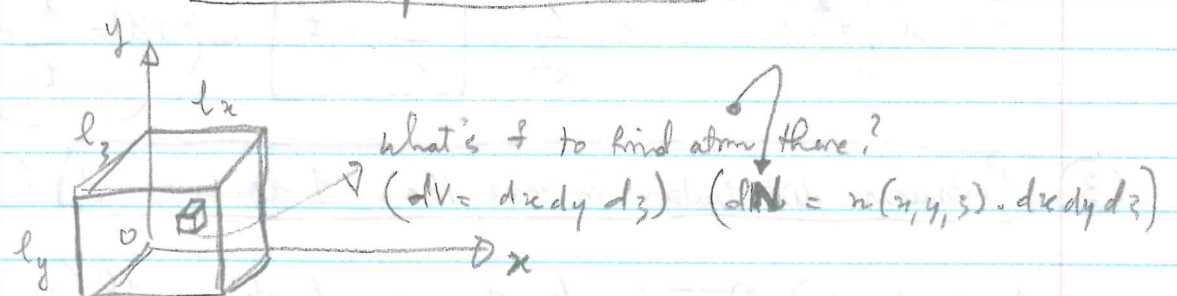 y
lx
lz
What's f to find atom there?
(dV = dx dy dz) (dN = n(x,y,z). dx dy dz)
ly
0
x